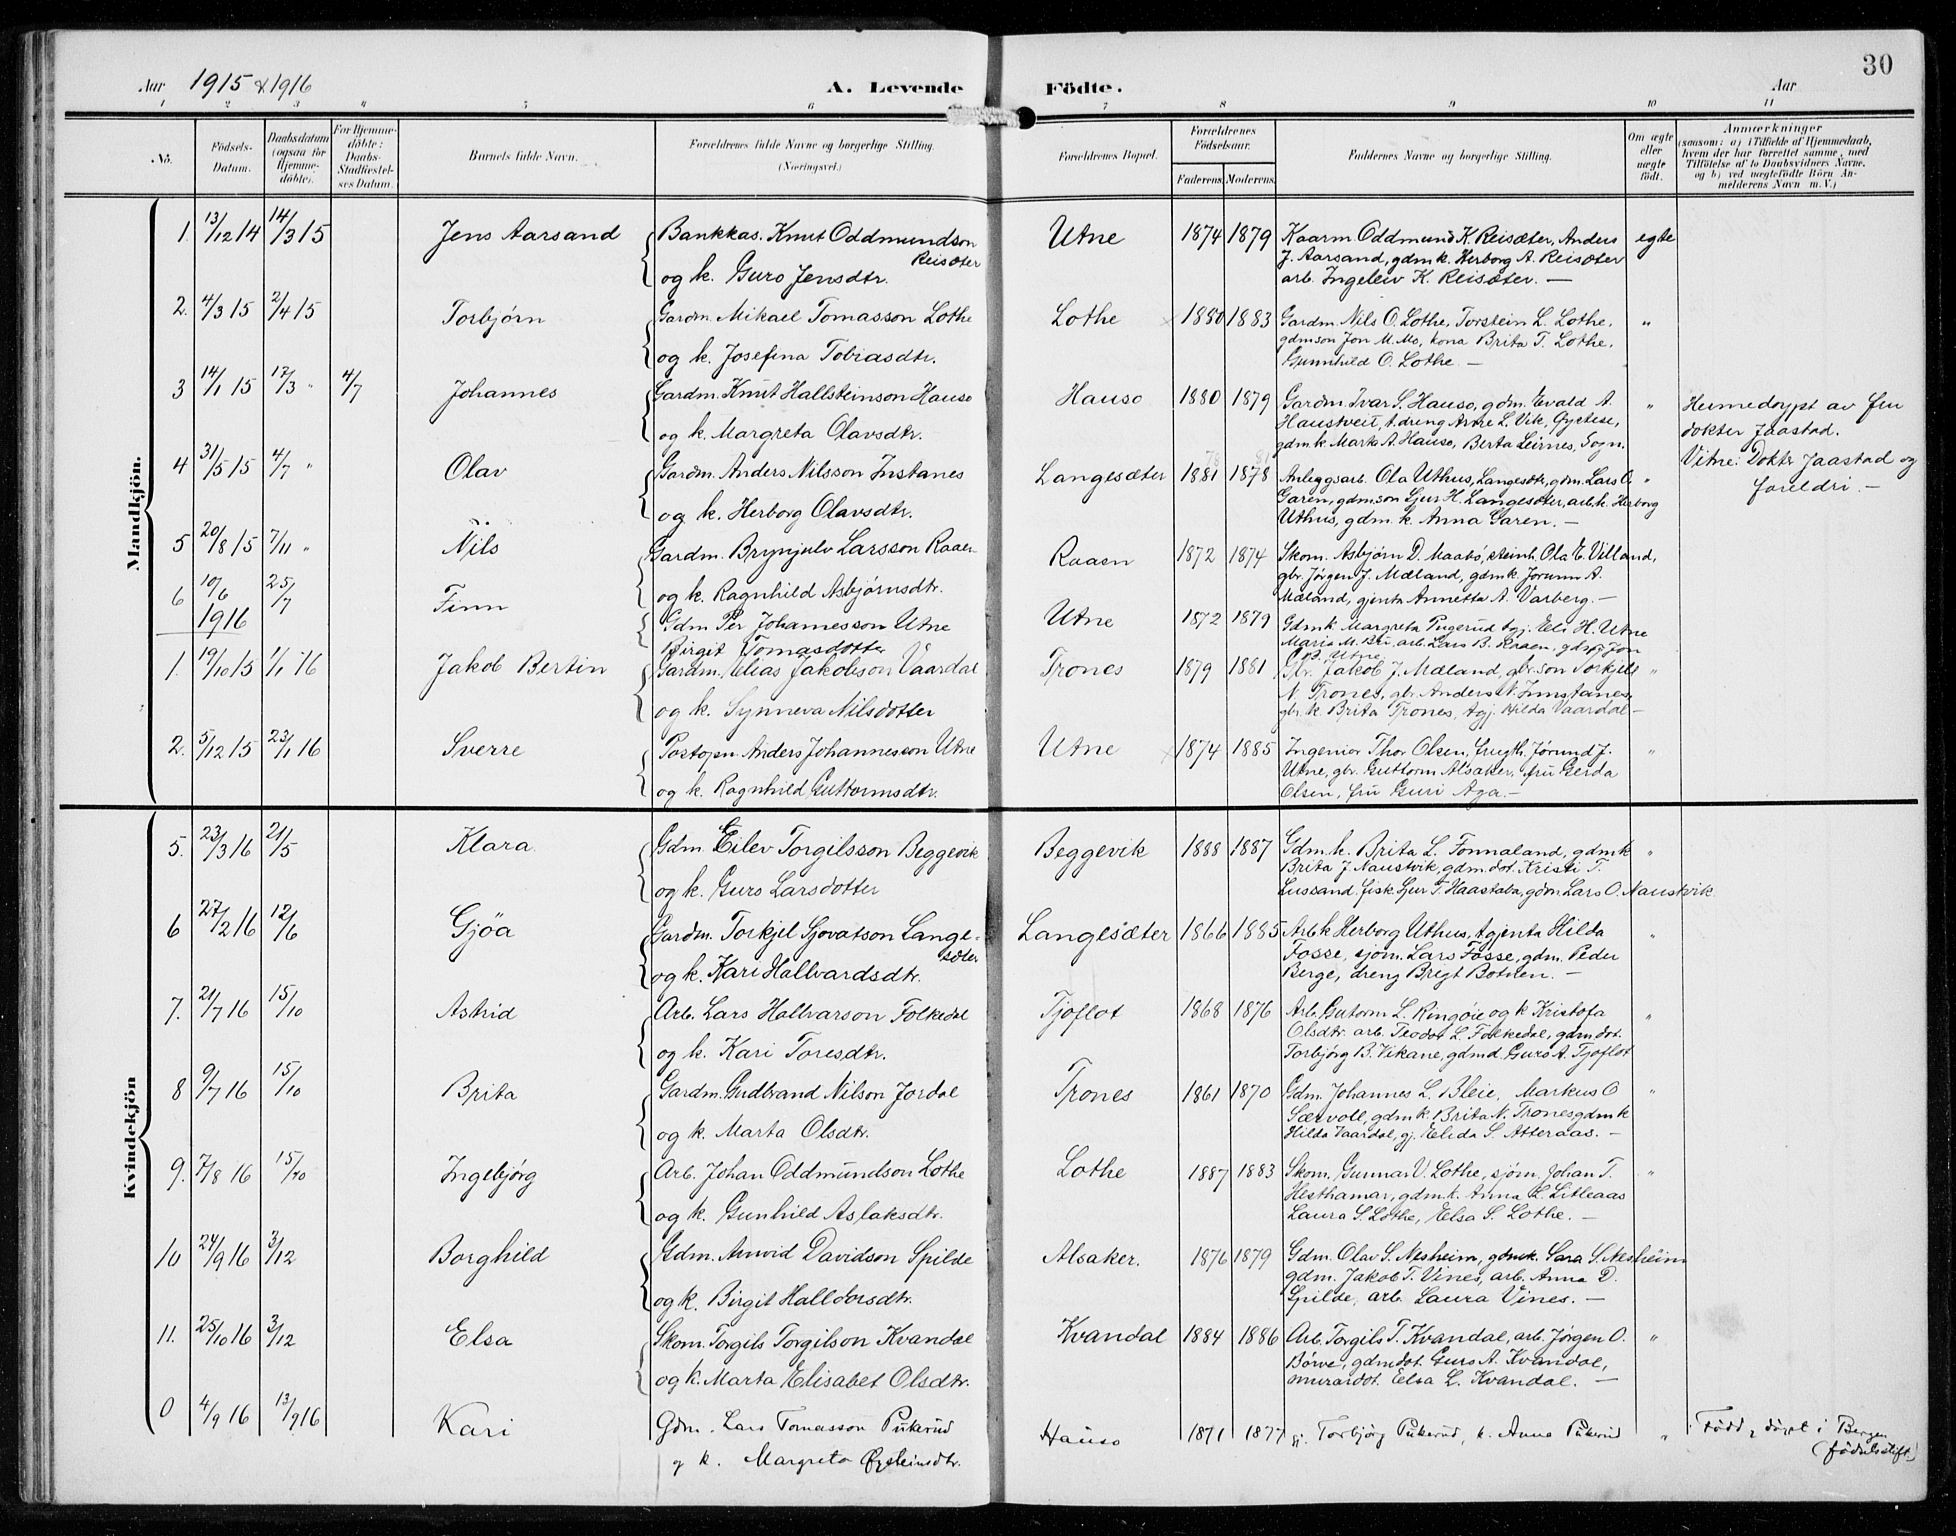 30
Aar 1915 & 1916 A. Levende Födte. Aar
1 2 3 " 5 6 7 8 9 10 11
No. Födsels-Datum. Daabsdatum (ogsaa for Hjemme-döbte). For Hjemme-döbte: Daabs-Stadfæstel-ses Datum. Barnets fulde Navn. Forældrenes fulde Navne og borgerlige Stilling. (Næringsvei.) Forældrenes Bopæl. Forældrenes Födselsaar. Faderens. Moderens. Faddernes Navne og borgerlige Stilling. Om ægte eller uægte födt. Anmærkninger
(saasom: a) i Tilfælde af Hjemmedaab, hvem der har forrettet samme, med Tilföielse af to Daabsvidners Navne, og b) ved uægtefödte Börn Anmelderens Navn m. V.)
Mandkjön.
1. 13/12 14 14/3 15 Jens Aarsand Bankkas. Knut Oddmundson Utne 1874 1879 Kaarm. Oddmund K. Reisæter, Anders egte
Reisæter J. Aarsand, gdm.k. Herborg A. Reisæter
og k. Guro Jensdtr. arb. Ingeleiv K. Reisæter. —
2. 4/3 15 2/4 15 Torbjørn Gardm. Mikael Tomasson Lothe Lothe 1880 1883 Gardm. Nils O. Lothe, Torstein L. Lothe, "
gdmson Jon M. Mo, kona Brita T. Lothe,
og k. Josefina Tobiasdtr. Gunnhild O. Lothe. —
3 14/1 15 12/3 " 4/7 Johannes Gardm. Knut Hallsteinson Hauso Hauso 1880 1879 Gardm. Ivar S. Hauso, gdm. Evald A. " Heimedøypt av fru
Haustveit, t.dreng Arne L. Vik, dokter Jaastad.
og k. Margreta Olavsdtr. gdm.k Marta A. Hauso, Berta Leirnes, Sogn.
4 31/5 15 4/7 " Olav Gardm. Anders Nilsson Instanes Langesæter 1881 1878 Anleggsarb. Ola Uthus, Langesætr, gdm. Lars O. " Vitne: Dokter Jaastad og
Garen, gdm.son Sjur H. Langesæter, arb.k. Herborg foreldri. —
og k. Herborg Olavsdtr. Uthus, gdm.k. Anna Garen. —
5 20/8 15 7/11 " Nils Gardm. Brynjulv Larsson Raaen Raaen 1872 1874 Skom. Asbjørn D. Maabø, steinh. Ola E. Villand,
gbr. Jørgen J. Mæland, gdmk. Jorunn A.
og k. Ragnhild Asbjørnsdtr. Mæland, gjenta Annetta A. Varberg. —
6 10/6 25/7 Finn Gdm Per Johannesson Utne Utne 1872 1879 Gdmk Margreta Pugerud tgj. Eli H. Utne
1916 Birgit Tomasdotter arb. Lars B. Raaen, Jon
Utne
1. 19/10 15 1/1 16 Jakob Bertin Gardm. Elias Jakobson Vaardal Trones 1879 1881 Gbr. Jakob J. Mæland, gbr.son Torkjell "
N. Trones, gbr. Anders N. Innstanes,
og k. Synneva Nilsdotter gbr.k. Brita Trones, tgj. Hilda Vaardal —
2. 5/12 15 23/1 16 Sverre Postopn. Anders Johannesson Utne Utne 1874 1885 Ingeniør Thor Olsen, frugth. Jørund J. "
Utne, gbr. Guttorm Alsaker, fru Gerda
og k. Ragnhild Guttormsdtr. Olsen, fru Guri Aga. —
Kvindekjön
5. 23/3 16 21/5 Klara Gdm. Eilev Torgilsson Beggevik Beggevik 1888 1887 Gdm.k. Brita L. Tonnaland, gdmk "
Brita J. Naustvik, gdm.dot. Kristi T.
og k. Guro Larsdotter Lussand, fisk. Sjur T. Haastabø, gdm. Lars O. Naustvik.
6 27/2 16 12/6 Gjöa Gardm. Torkjel Sjovatson Lange- Langesæter 1866 1885 Arb.k Herborg Uthus, tgjenta Hilda "
sæter Fosse, sjøm. Lars Fosse, gdm. Peder
og k. Kari Hallvardsdtr. Berge, dreng Brigt Botnen. —
7. 21/7 16 15/10 Astrid Arb. Lars Hallvarson Folkedal Tjoflot 1868 1876 Arb. Gutorm L. Ringøie og k Kristofa "
Olsdtr. arb. Teodot L. Folkedal, gdm.dot.
og k. Kari Toresdtr. Torbjørg B. Vikane, gdmd. Guro A. Tjoflot
8 9/7 16 15/10 Brita Gardm. Gudbrand Nilson Jordal Trones 1861 1870 Gdm. Johannes L. Bleie, Markus O "
Særvoll, gdm.k. Brita N. Trones gdmk
og k. Marta Olsdtr. Hilda Vaardal, gj. Elida S. Atteraas. —
9. 7/8 16 15/10 Ingebjørg Arb. Johan Oddmundson Lothe Lothe 1887 1883 Skom. Gunnar V. Lothe, sjøm. Johan T. "
Hesthamar, gdm.k. Anna L. Litleaas
og k. Gunhild Aslaksdtr. Laura S. Lothe, Elsa S. Lothe. —
10 24/9 16 3/12 Borghild Gdm. Arnvid Davidson Spilde Alsaker. 1876 1879 Gdm. Olav S. Nesheim, gdmk. Sara S. Nesheim
gdm. Jakob T. Vines, arb. Anna D.
og k. Birgit Halldorsdtr. Spilde, arb. Laura Vines. —
11. 25/10 16 3/12 Elsa Skom. Torgils Torgilson Kvandal Kvandal 1884 1886 Arb. Torgils T. Kvandal, arb. Jørgen O. "
Børve, gdm.dot. Guro A. Kvandal,
og k. Marta Elisabet Olsdtr. murardot. Elsa L. Kvandal. —
0 4/9 16 13/9 16 Kari Gdm. Lars Tomasson Pukerud Hauso 1871 1877 gj. Torbjørg Pukerud, k. Anna Pukerud " Född, döpt i Bergen
g k. Margreta Øysteinsdtr. (födselsstift.)